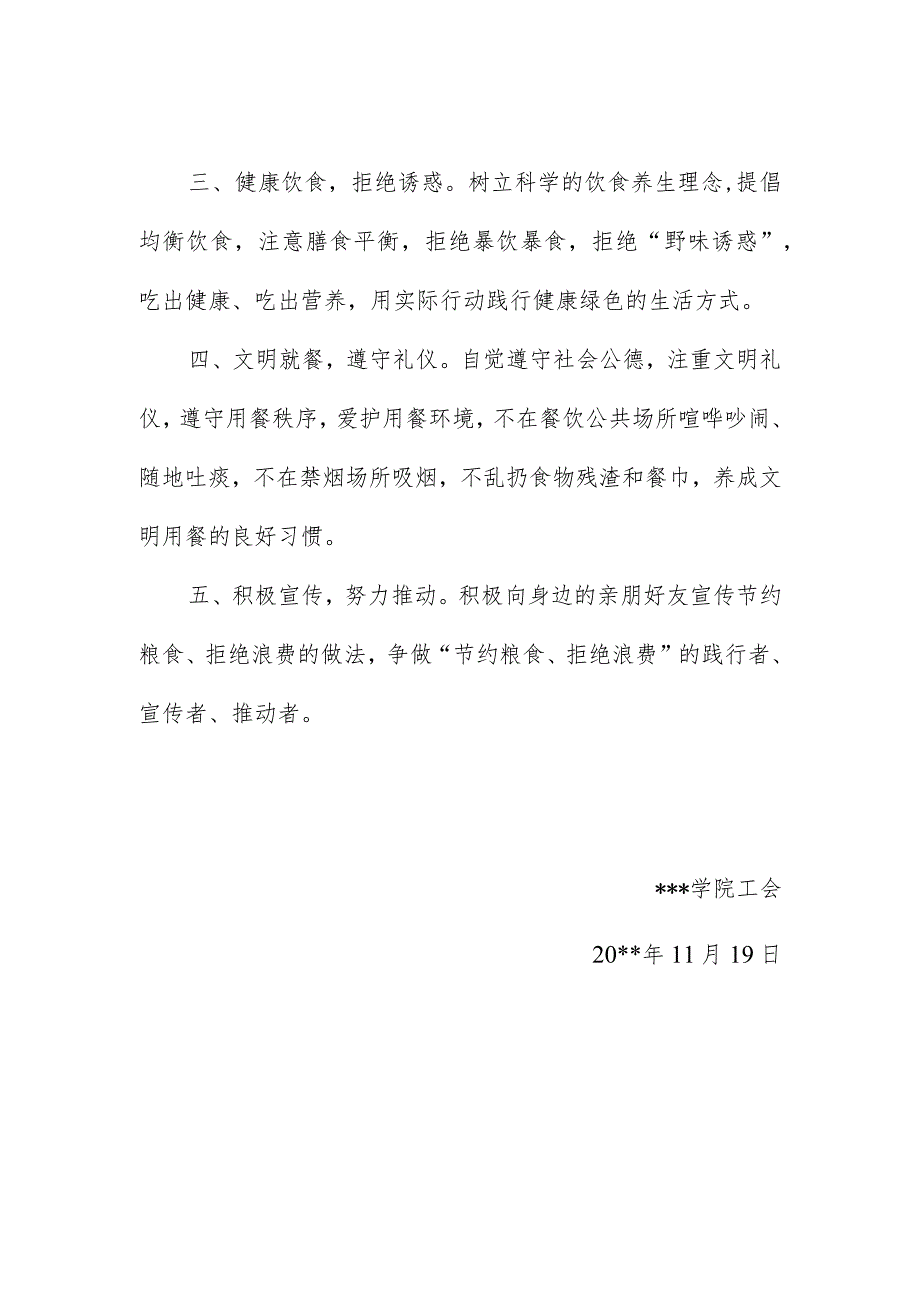 三、健康饮食，拒绝诱惑。树立科学的饮食养生理念,提倡
均衡饮食，注意膳食平衡，拒绝暴饮暴食，拒绝“野味诱惑”，
吃出健康、吃出营养，用实际行动践行健康绿色的生活方式。
四、文明就餐，遵守礼仪。自觉遵守社会公德，注重文明礼
仪，遵守用餐秩序，爱护用餐环境，不在餐饮公共场所喧哗吵闹、
随地吐痰，不在禁烟场所吸烟，不乱扔食物残渣和餐巾，养成文
明用餐的良好习惯。
五、积极宣传，努力推动。积极向身边的亲朋好友宣传节约
粮食、拒绝浪费的做法，争做“节约粮食、拒绝浪费”的践行者、
宣传者、推动者。
***学院工会
20**年 11 月 19 日